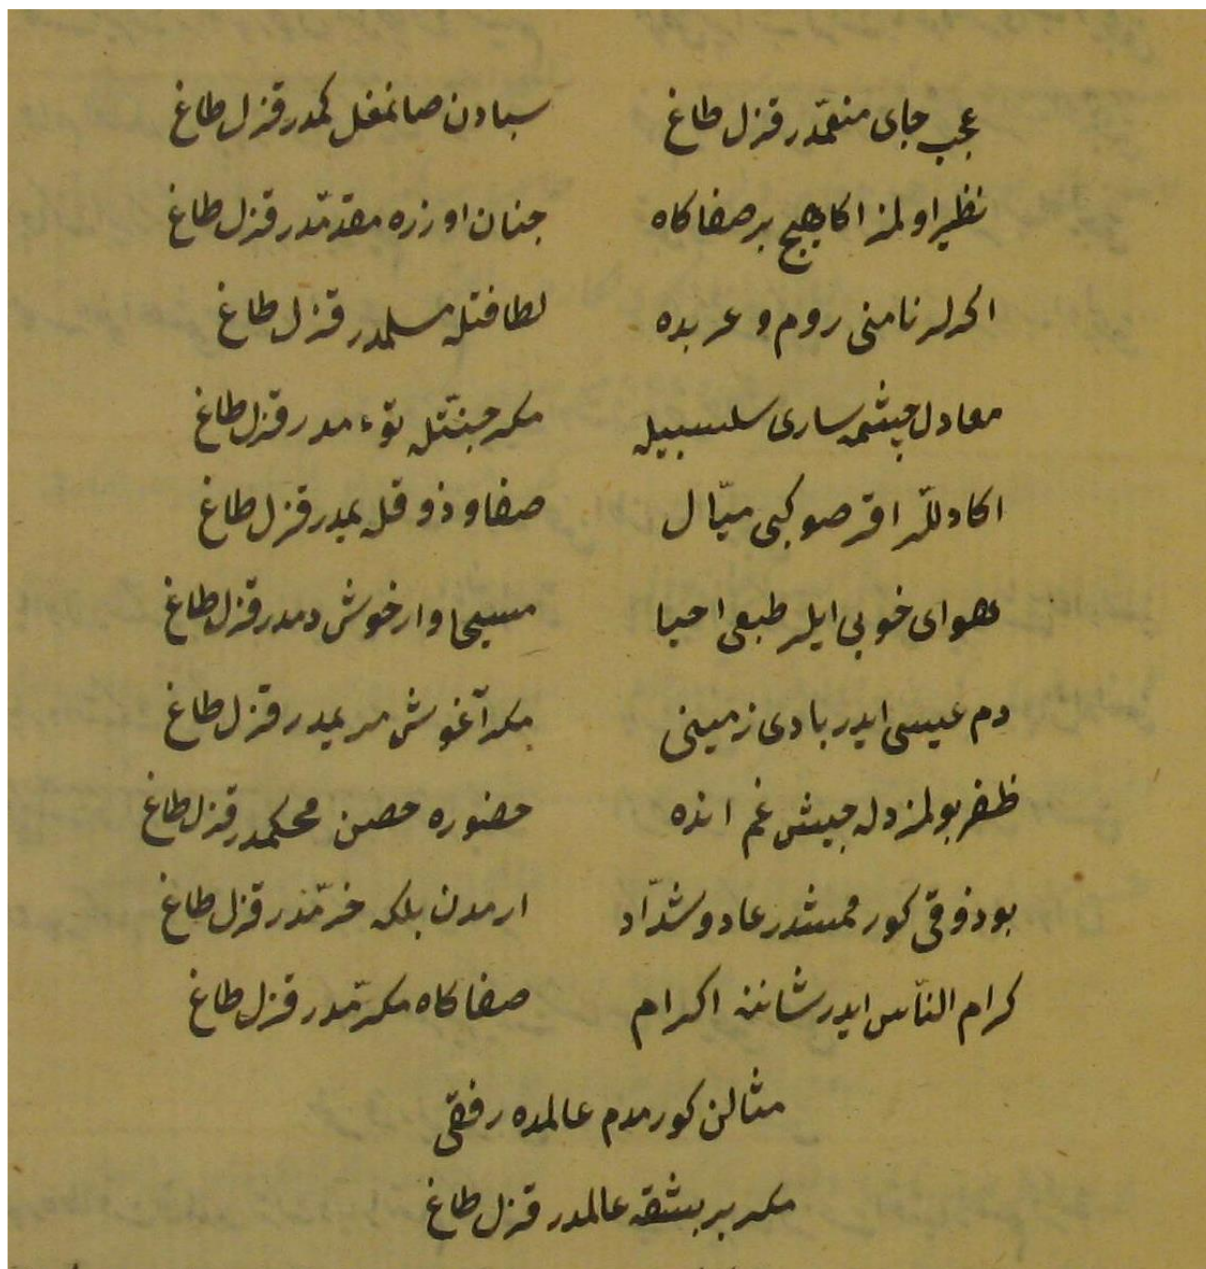 عجب جای منعّمدر قزل طاغ سبادن صانمغل کمدر قزل طاغ
نظیر اولمز اکا هیچ بر صفاکاه جنان اوزره مقدّمدر قزل طاغ
اکرلر نامنی روم و عربده لطافتله مسلمدر قزل طاغ
معادل چشمه ساری سلسبیله مکر جنّتله توءمدر قزل طاغ
اکا دللّر اقر صو کبی میّال صفا و ذوقله یمدر قزل طاغ
هوای خوبی ایلر طبعی احیا مسیحا وار خوش دمدر قزل طاغ
دم عیسی ایدر بادی زمینی مکر آغوش مریمدر قزل طاغ
ظفر بولمز دله جیش غم انده حضوره حصن محکمدر قزل طاغ
بو ذوقی کورممشدر عاد و شدّاد ارمدن بلکه خرّمدر قزل طاغ
کرام النّاس ایدر شاننه اکرام صفاکاه مکرّمدر قزل طاغ
مثالن کورمدم عالمده رفقی
مکر بر بشقه عالمدر قزل طاغ